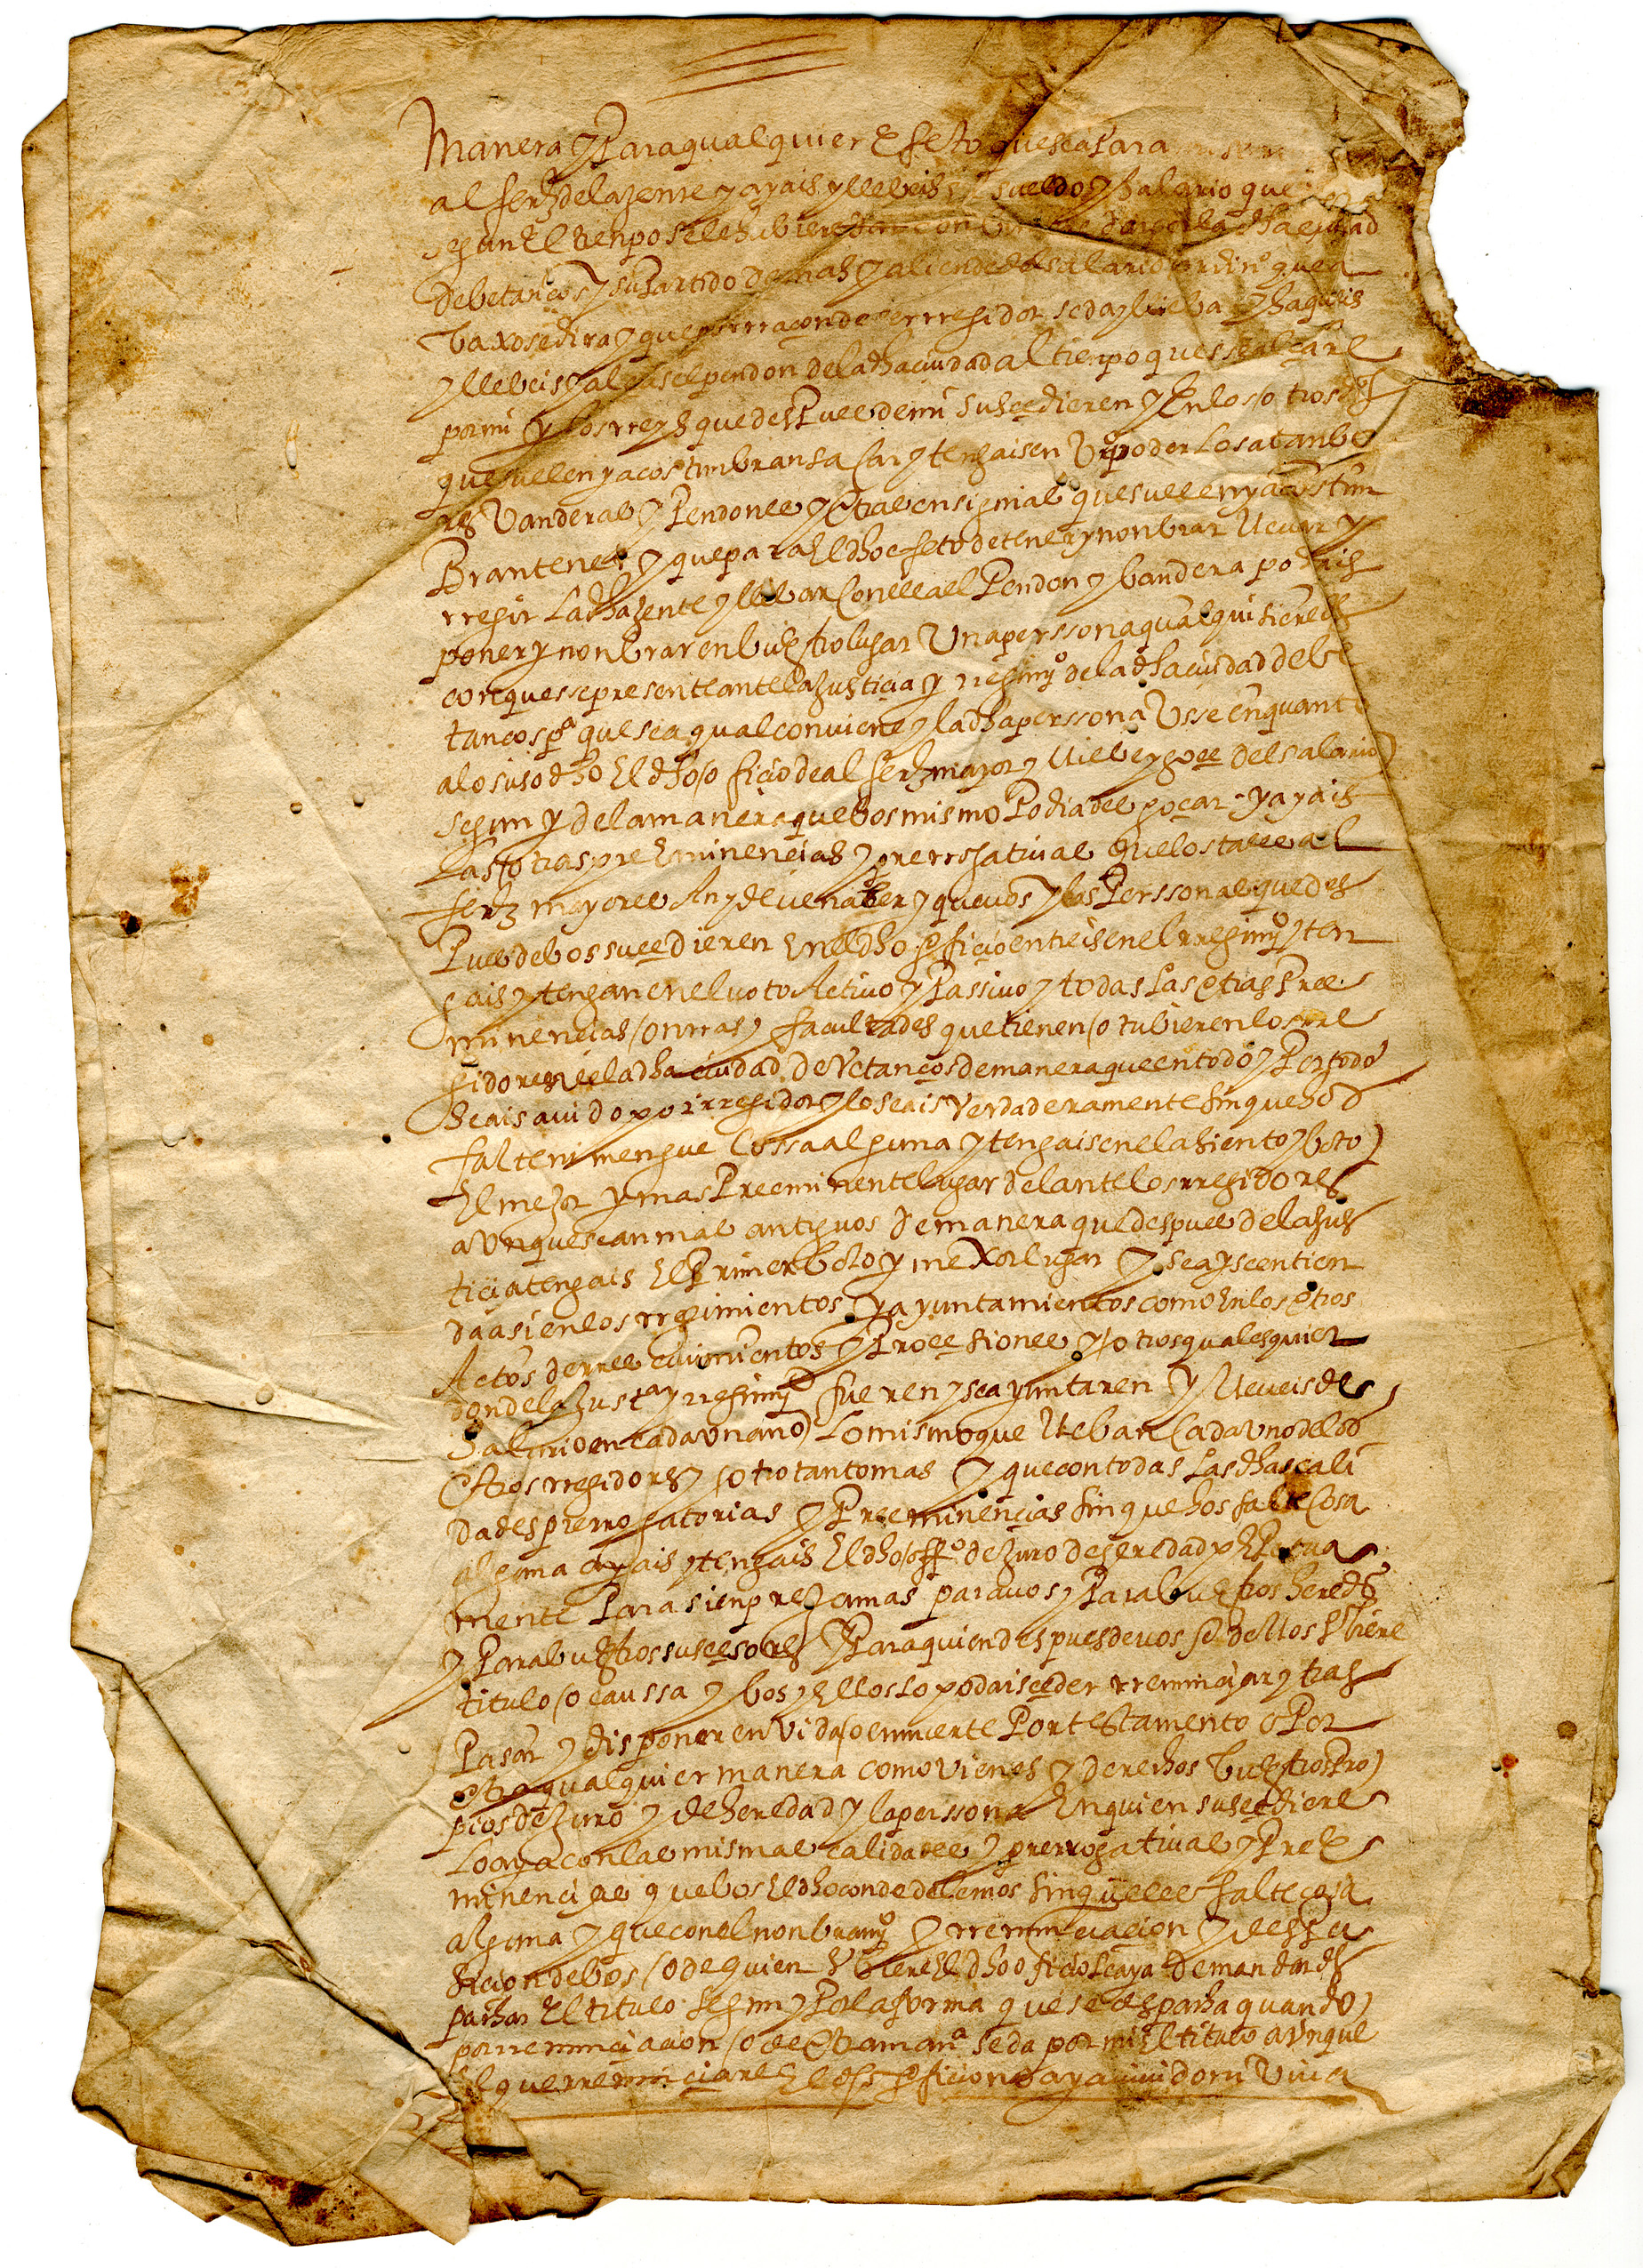 manera y Para qualquier Efeto que sea Para
alferz de la jente y ayais y llebeis el sueldo y salario que
segun El tienpo se le hubiere la dha ciudad
de betanços y su Partido demas y aliende del salario ordinº que a
baxo se dira y que por rraçon de ser rregidor se da y lieba y hagais
y llebeis y alçeis el pendon de la dha ciudad al tienpo que se alçare
por mi y los rreys que despues de mi susçedieren y En los otros dias
que suelen y acostunbran sacar y tengais en vrº poder Los atanbo
res Vanderas y Pendones y otras ensignias que suelen y acostun
Bran tener y que para El dho efeto de tener y nonbrar llevar y
rregir La dha jente y llebar con ella el Pendon y bandera podais
poner y nonbrar en buestro lugar Una perssona qual quisieredes
con que se presente ante la justicia y rregimyº de la dha ciudad de be
tanços pª que sea qual conviene y la dha perssona Usse en quanto
a lo susodho El dho oficio de alferz mayor y llebe y goce del salario
segun y de la manera que bos mismo Podiades goçar y ayais
Las otras preEminencias y prerrogativas que los tales al
ferz mayores An y deven aber y que vos y las Perssonas que des
Pues de bos suçedieren En el dho oficio entreis en el rregimyº y ten
gais y tengan en el voto Activo y Passivo y todas Las otras Pree
minencias onrras y facultades que tienen o tubieren los rre
gidores de la dha ciudad de Vetanços de manera que en todo y Por todo
seais avido por rregidor y lo seais verdaderamente sin que hos
falte ni mengue Cossa alguna y tengais en el asiento y boto
El mejor y mas Preeminente lugar delante los rregidores
aunque sean mas antiguos de manera que despues de la jus
ticia tengais El Primer boto y mexor lugar y sea y se entien
da asi en los rregimientos y ayuntamientos como En los otros
Actos de rreçevimientos y Proçesiones y otros qualesquier
donde la justª y rregimyº fueren y se ayuntaren y lleveis de
Salario en cada un año Lo mismo que lleban Cada uno de los
otros rregidores y otro tanto mas y que con todas Las dhas cali
dades prerrogatorias y Preeminencias sin que hos falte Cosa
alguna ayais y tengais El dho offº de juro de heredad perpetua
mente Para sienpre jamas para vos y Para buestros heredºs
y Para buestros susçesores y Para quien despues de vos o dellos Hubiere
titulo o caussa y bos y Ellos lo podais çeder rrenunçiar y tras
Pasar y disponer en vida o en muerte Por testamento o Por
otra qualquier manera como vienes y derechos buestros Pro
pios de juro y de heredad y la perssona En quien susçediere
Lo aya con las mismas calidades y prerrogativas y Pree
minencias que bos El dho conde de lemos sin que le falte cosa
alguna y que con el nonbramyº y rrenunciaçion y dispu
siçion de bos o de quien Hubiere El dho oficio se aya de mandar des
pachar El titulo segun y Por la forma que se despacha quando
por rrenunciaçion o de otra manª se da por mi El titulo aunque
El que rrenunciare El dho oficio no aya vivido ni viva